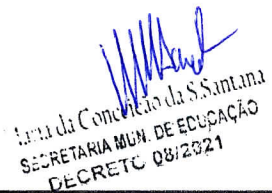 da Conceição da S.Santana
SECRETARIA MUN. DE EDUCAÇÃO
DECRETO 08/2021